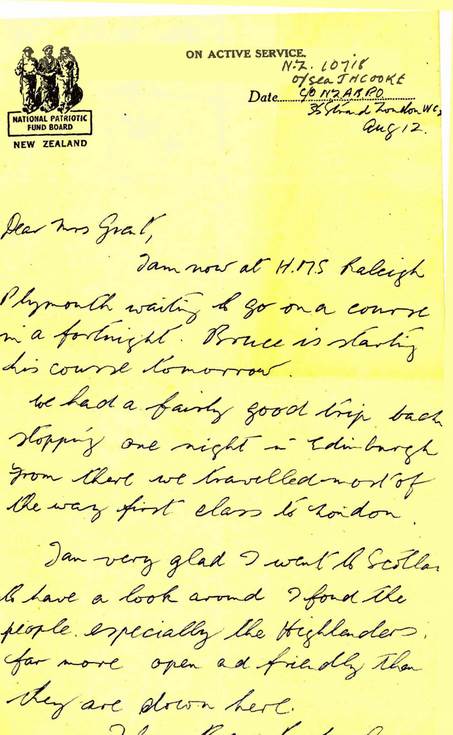 ON ACTIVE SERVICE.
N.Z. 10718
O/Sea J H COOKE
Date C/O NZARPO
Strand London WC2
Aug 12.
NATIONAL PATRIOTIC
FUND BOARD
NEW ZEALAND
Dear Mrs Grant,
I am now at H.M.S Raleigh
Plymouth waiting to go on a course
in a fortnight. Bruce is starting
his course tomorrow.
We had a fairly good trip back
stopping one night in Edinburgh
From there we travelled most of
the way first class to London.
I am very glad I went to Scotla
to have a look around I fond the
people. especially the Highlanders.
far more open ad friendly then
they are down here.